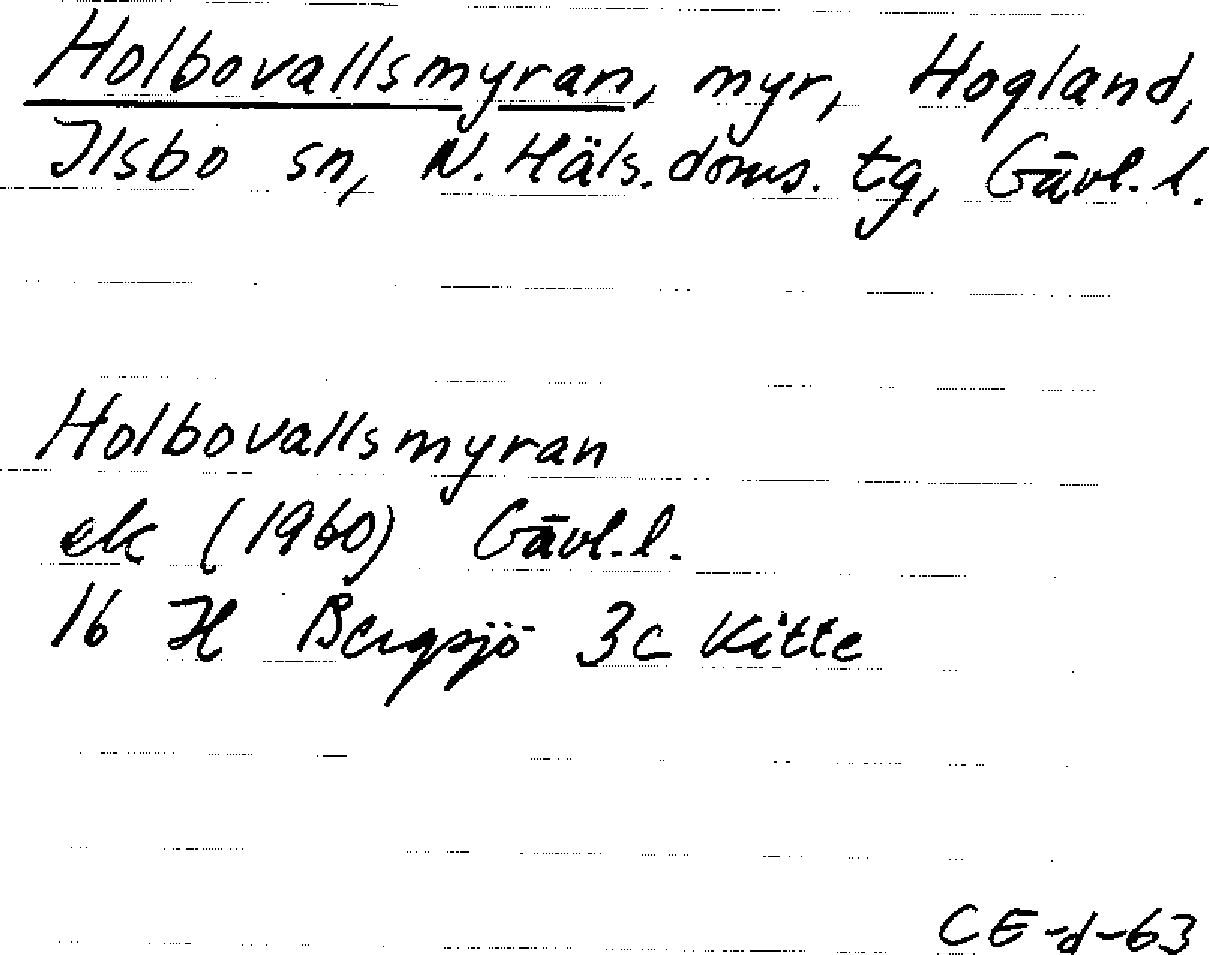 Holbovallsmyran, myr, Hogland,
Ilsbo sn, N. Häls. doms. tg, Gävl. l.
Holbovallsmyran
ek (1960) Gävl. l.
16 H Bergsjö 3c Kitte
CE-d-63